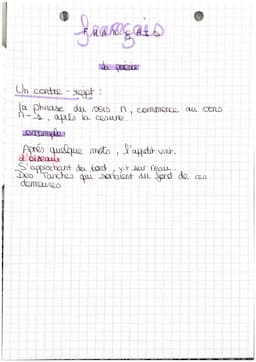 français
FRANÇAIS
la poésie
Un contre-rejet :
la phrase du vers n, commence au vers
n-1, après la césure.
exemple
Après quelque mots, l'appétit vint.
l'oiseau
S'approchant du bord, vit sur l'eau
Des Tanches qui sortaient du fond de ces
demeures